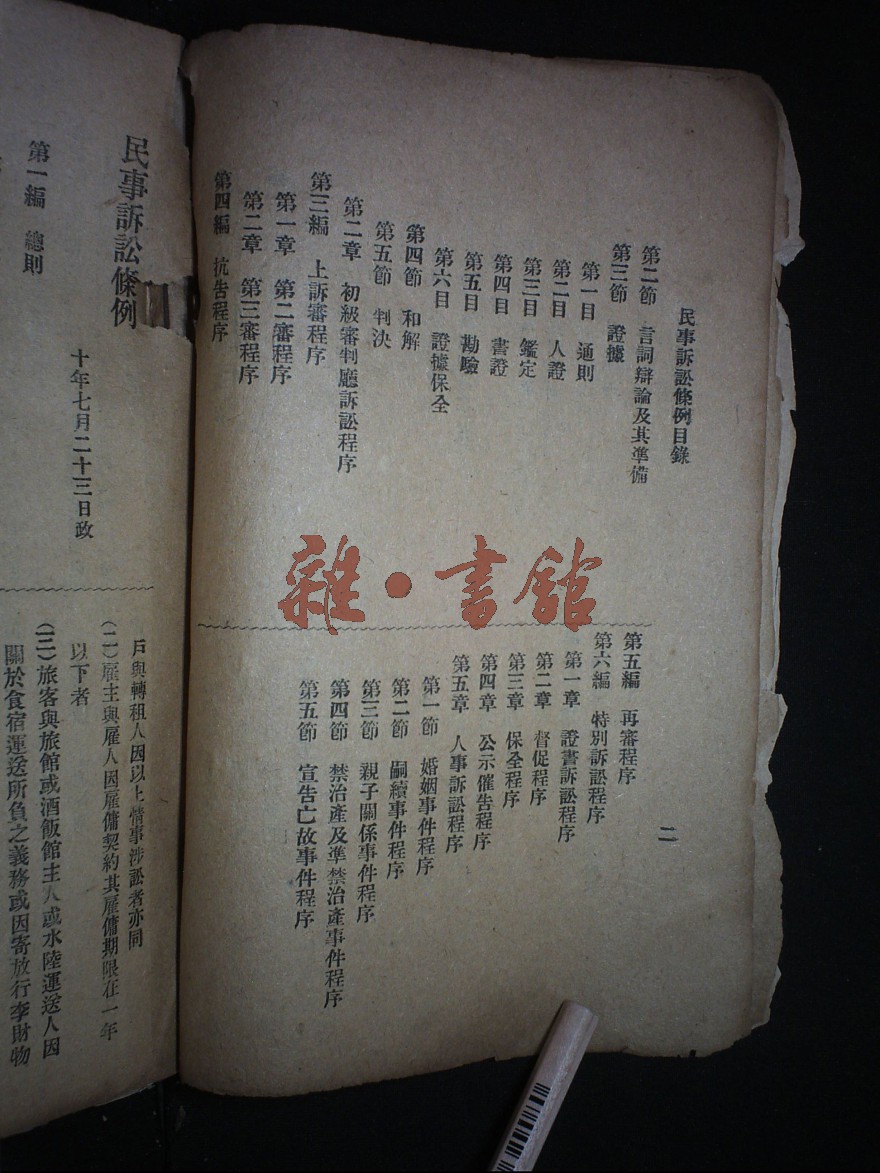 民事訴訟條例目錄
第二節 言詞辯論及其準備
第三節 證據
第一目 通則
第二目 人證
第三目 鑑定
第四目 書證
第五目 勘驗
第六目 證據保全
第四節 和解
第五節 判決
第二章 初級審判廳訴訟程序
第三編 上訴審程序
第一章 第二審程序
第二章 第三審程序
第四編 抗告程序
二
第五編 再審程序
第六編 特別訴訟程序
第一章 證書訴訟程序
第二章 督促程序
第三章 保全程序
第四章 公示催告程序
第五章 人事訴訟程序
第一節 婚姻事件程序
第二節 嗣續事件程序
第三節 親子關係事件程序
第四節 禁治產及準禁治產事件程序
第五節 宣告亡故事件程序
雜·書館
民事訴訟條例
十年七月二十三日政
第一編 總則
戶與轉租人因以上情事涉訟者亦同
(二)雇主與雇人因雇傭契約其雇傭期限在一年
以下者
(三)旅客與旅館或酒飯館主人或水陸運送人因
關於食宿運送所負之義務或因寄放行李財物